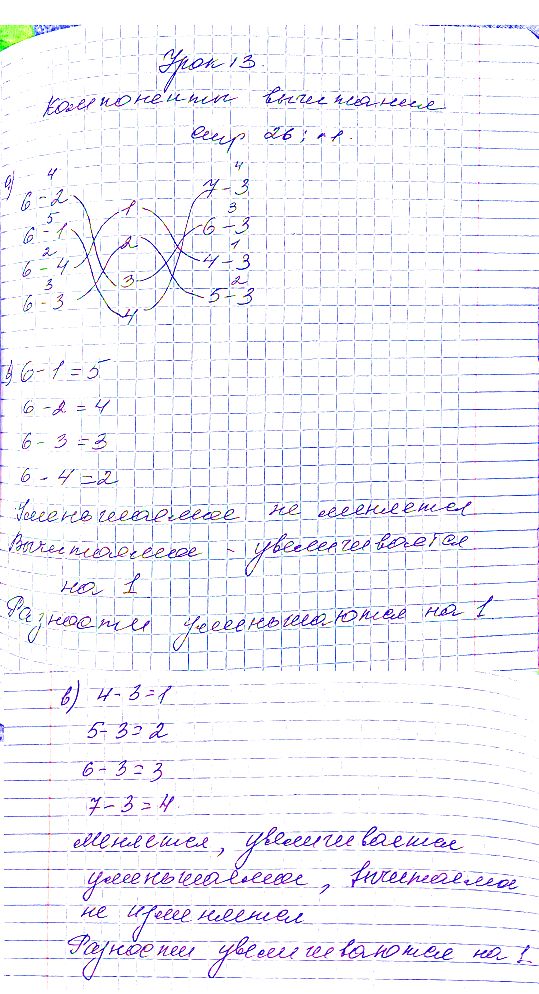 Урок 13.
Компоненты вычитания
стр 26; №1.
а)
4
6 - 2
5
6 - 1
2
6 - 4
3
6 - 3
1
2
3
4
4
7 - 3
3
6 - 3
1
4 - 3
2
5 - 3
б) 6 - 1 = 5
6 - 2 = 4
6 - 3 = 3
6 - 4 = 2
Уменьшаемое не меняется
Вычитаемое - увеличивается
на 1
Разности уменьшаются на 1
в) 4 - 3 = 1
5 - 3 = 2
6 - 3 = 3
7 - 3 = 4
меняется, увеличивается
уменьшаемое, вычитаемое
не изменяется
Разности увеличиваются на 1.